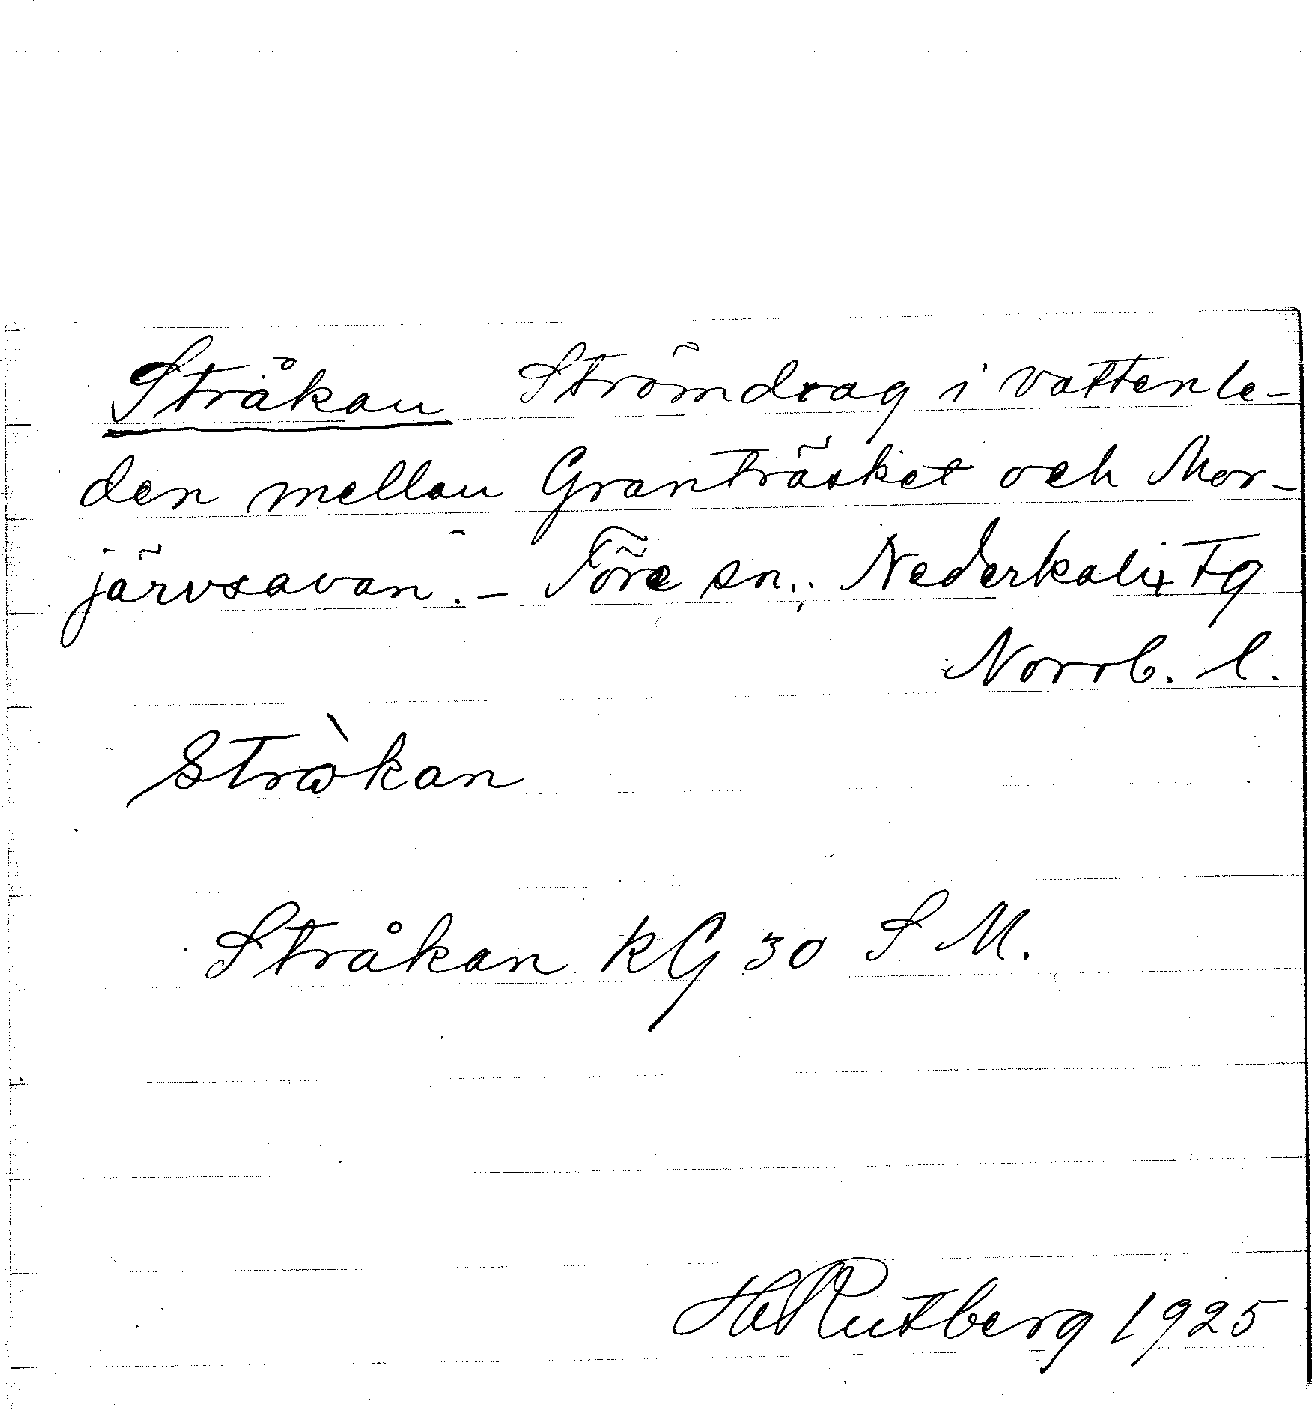 Stråkan Strömdrag i vattenle-
den mellan Granträsket och Mor-
järvsavan. - Töre sn. Nederkalix Tg
Norrb. l.
Stråkan KG 30 S M.
H Rutberg 1925